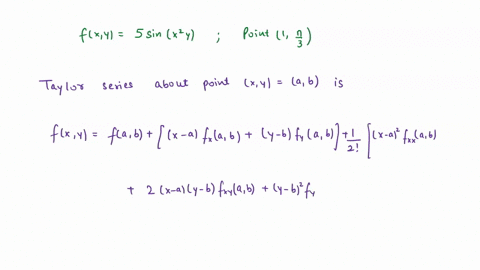 f(x,y) = 5 sin (x²y) ; Point (1, π/3)
Taylor series about point (x,y) = (a,b) is
f(x,y) = f(a,b) + [(x-a) fx(a,b) + (y-b) fy (a,b)] + 1/2! [(x-a)² fxx(a,b)
+ 2 (x-a)(y-b) fxy(a,b) + (y-b)² fy